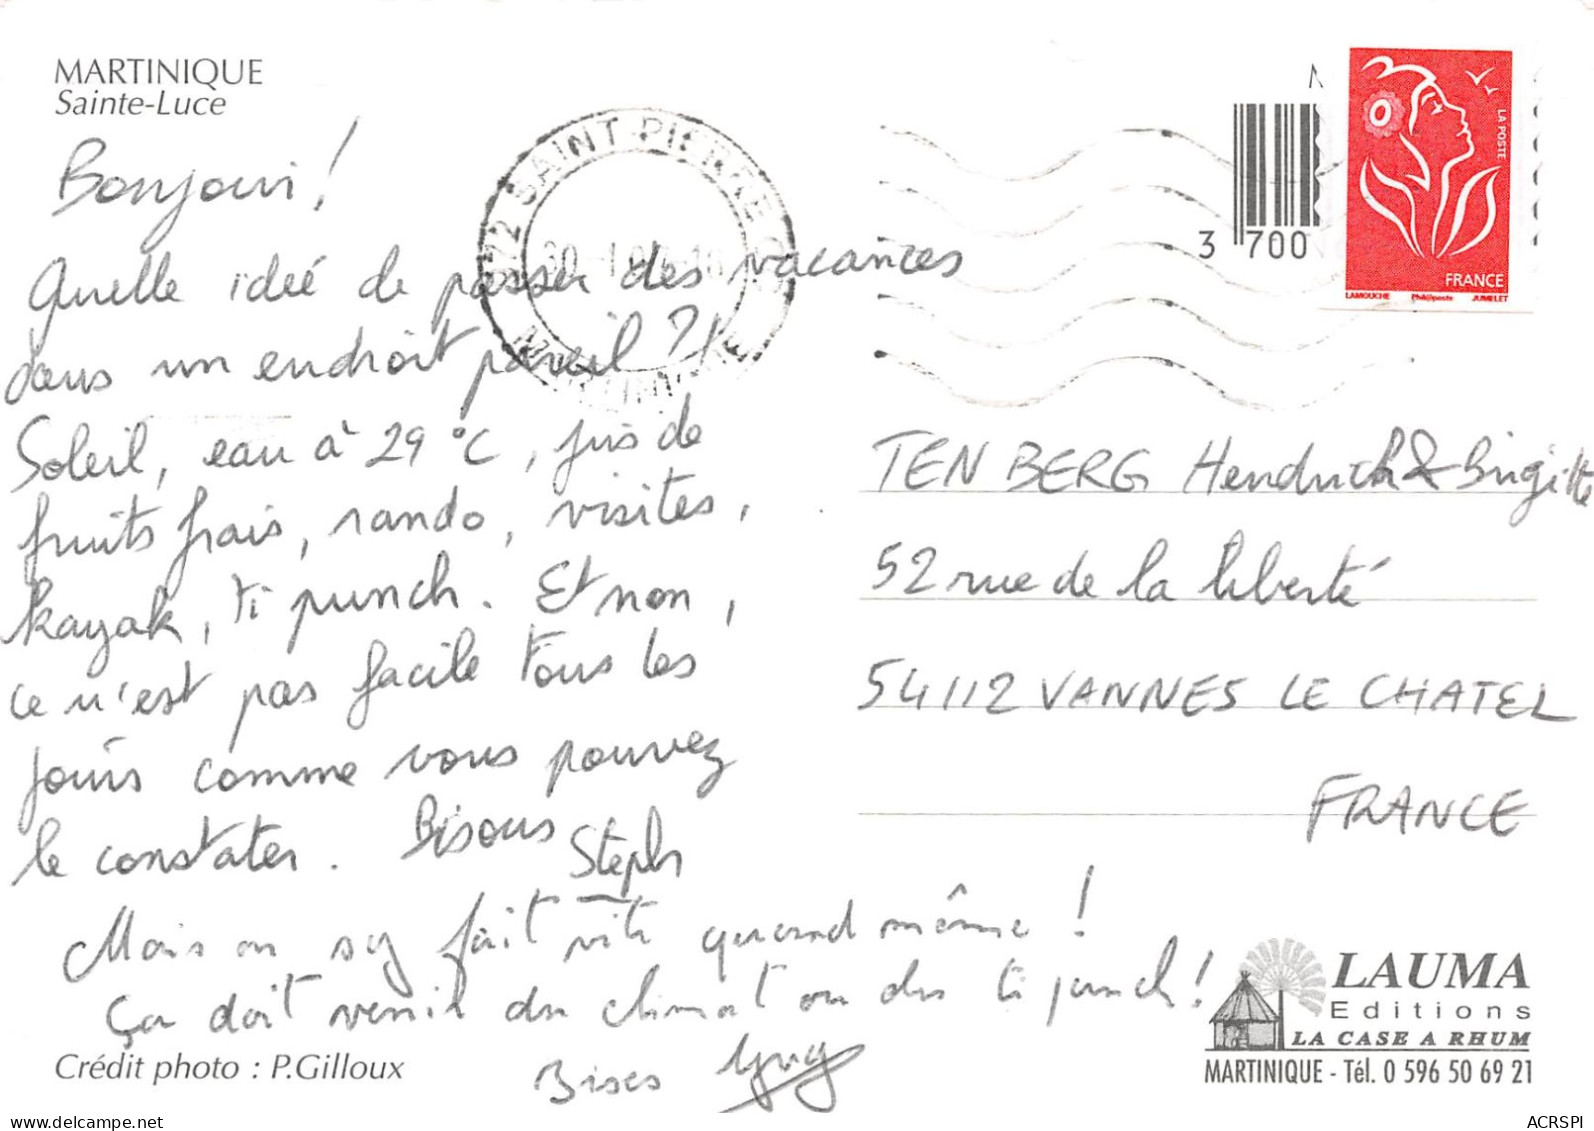 MARTINIQUE
Sainte-Luce
Bonjour !
Quelle idée de passer des vacances
dans un endroit pareil ?!
Soleil, eau à 29 °C, jus de
fruits frais, rando, visites,
kayak, ti punch. Et non,
ce n'est pas facile tous les
jours comme vous pouvez
le constater. Bisous
Steph
Mais on s'y fait vite quand même !
Ça doit venir du climat ou du ti punch !
Bises
Crédit photo : P.Gilloux
SAINT PIERRE
MARTINIQUE
3 700
LA POSTE
FRANCE
LAMOUCHE Phil@poste JUMELET
TEN BERG Hendrick & Brigitte
52 rue de la liberté
54112 VANNES LE CHATEL
FRANCE
LAUMA
Editions
LA CASE A RHUM
MARTINIQUE - Tél. 0 596 50 69 21
ACRSPI